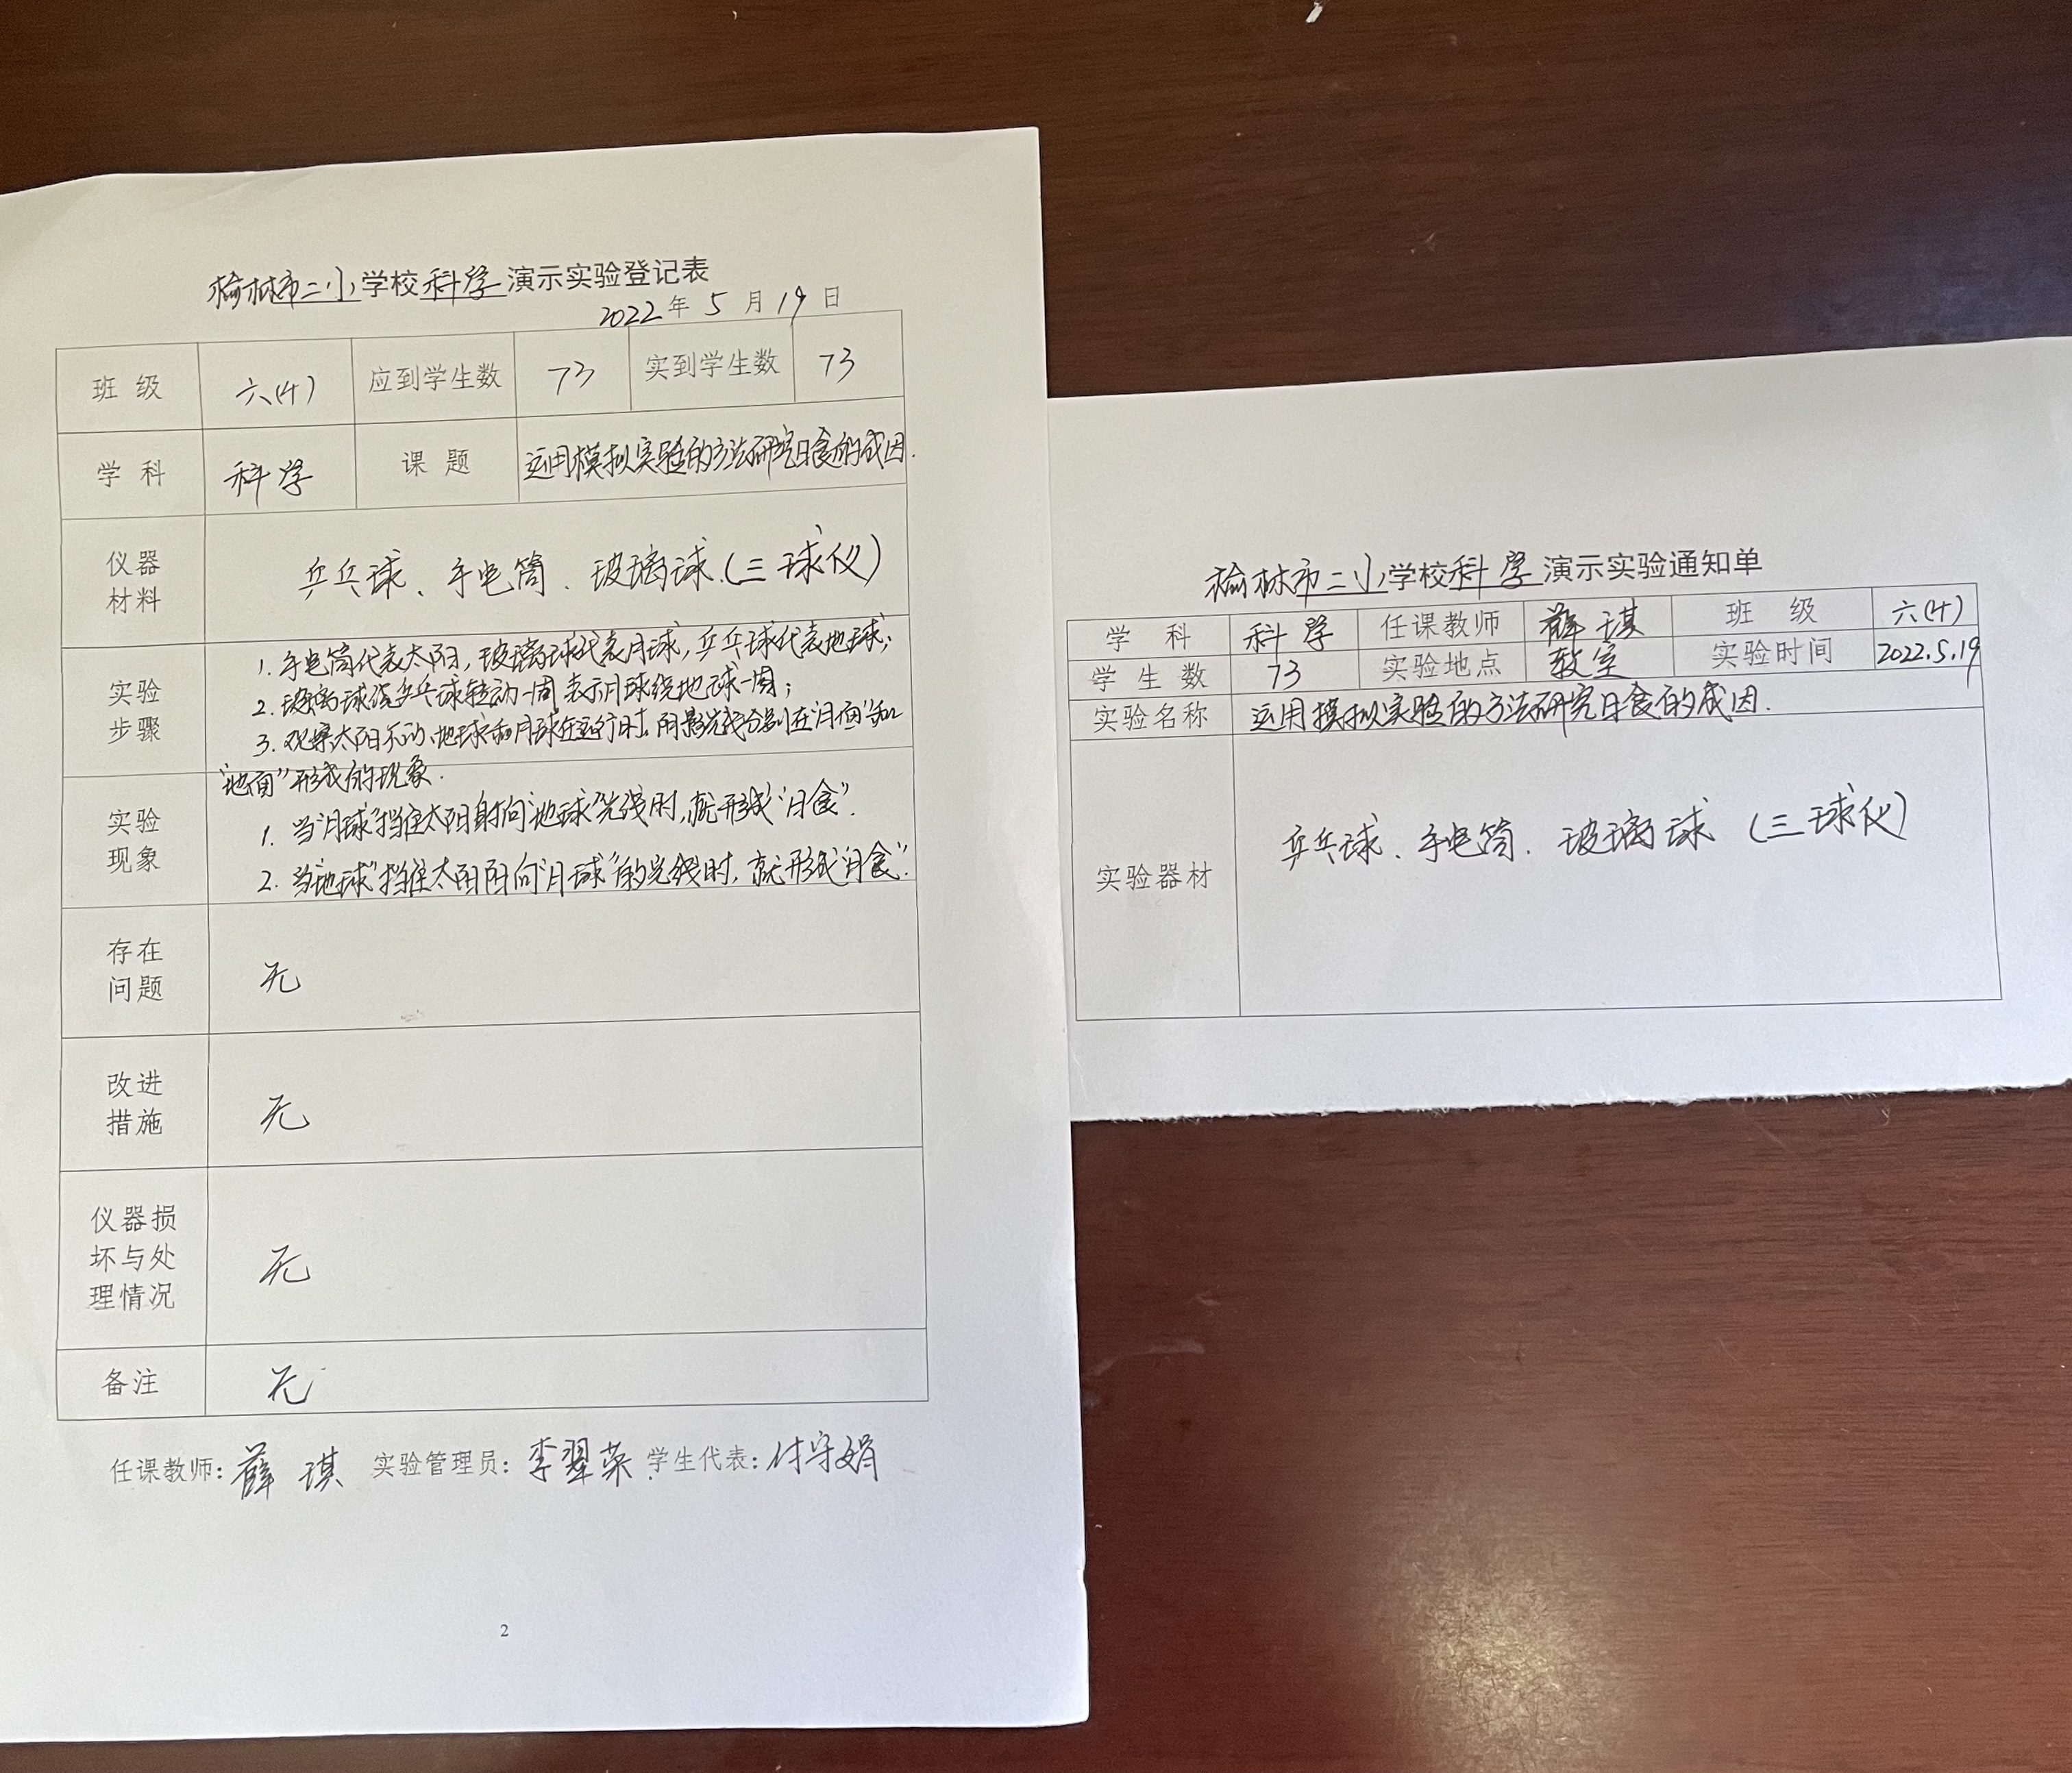 榆林市二小学校科学演示实验登记表
2022年5月19日
班级 六(4) 应到学生数 73 实到学生数 73
学科 科学 课题 运用模拟实验的方法研究日食的成因.
仪器材料 乒乓球、手电筒、玻璃球.(三球仪)
实验步骤 1. 手电筒代表太阳,玻璃球代表月球,乒乓球代表地球;
2. 玻璃球绕乒乓球转动一周 表示月球绕地球一周;
3. 观察太阳不动、地球和月球在运行时,阴影完成分别在"月面"和
"地面"形成的现象.
实验现象 1. 当"月球"挡住太阳射向"地球"光线时,就形成"日食".
2. 当"地球"挡住太阳阳向"月球"的光线时,就形成"月食".
存在问题 无
改进措施 无
仪器损坏与处理情况 无
备注 无
任课教师: 薛琪 实验管理员: 李翠荣 学生代表: 付守娟
2
榆林市二小学校科学演示实验通知单
学科 科学 任课教师 薛琪 班级 六(4)
学生数 73 实验地点 教室 实验时间 2022.5.19
实验名称 运用模拟实验的方法研究日食的成因.
实验器材 乒乓球、手电筒、玻璃球 (三球仪)